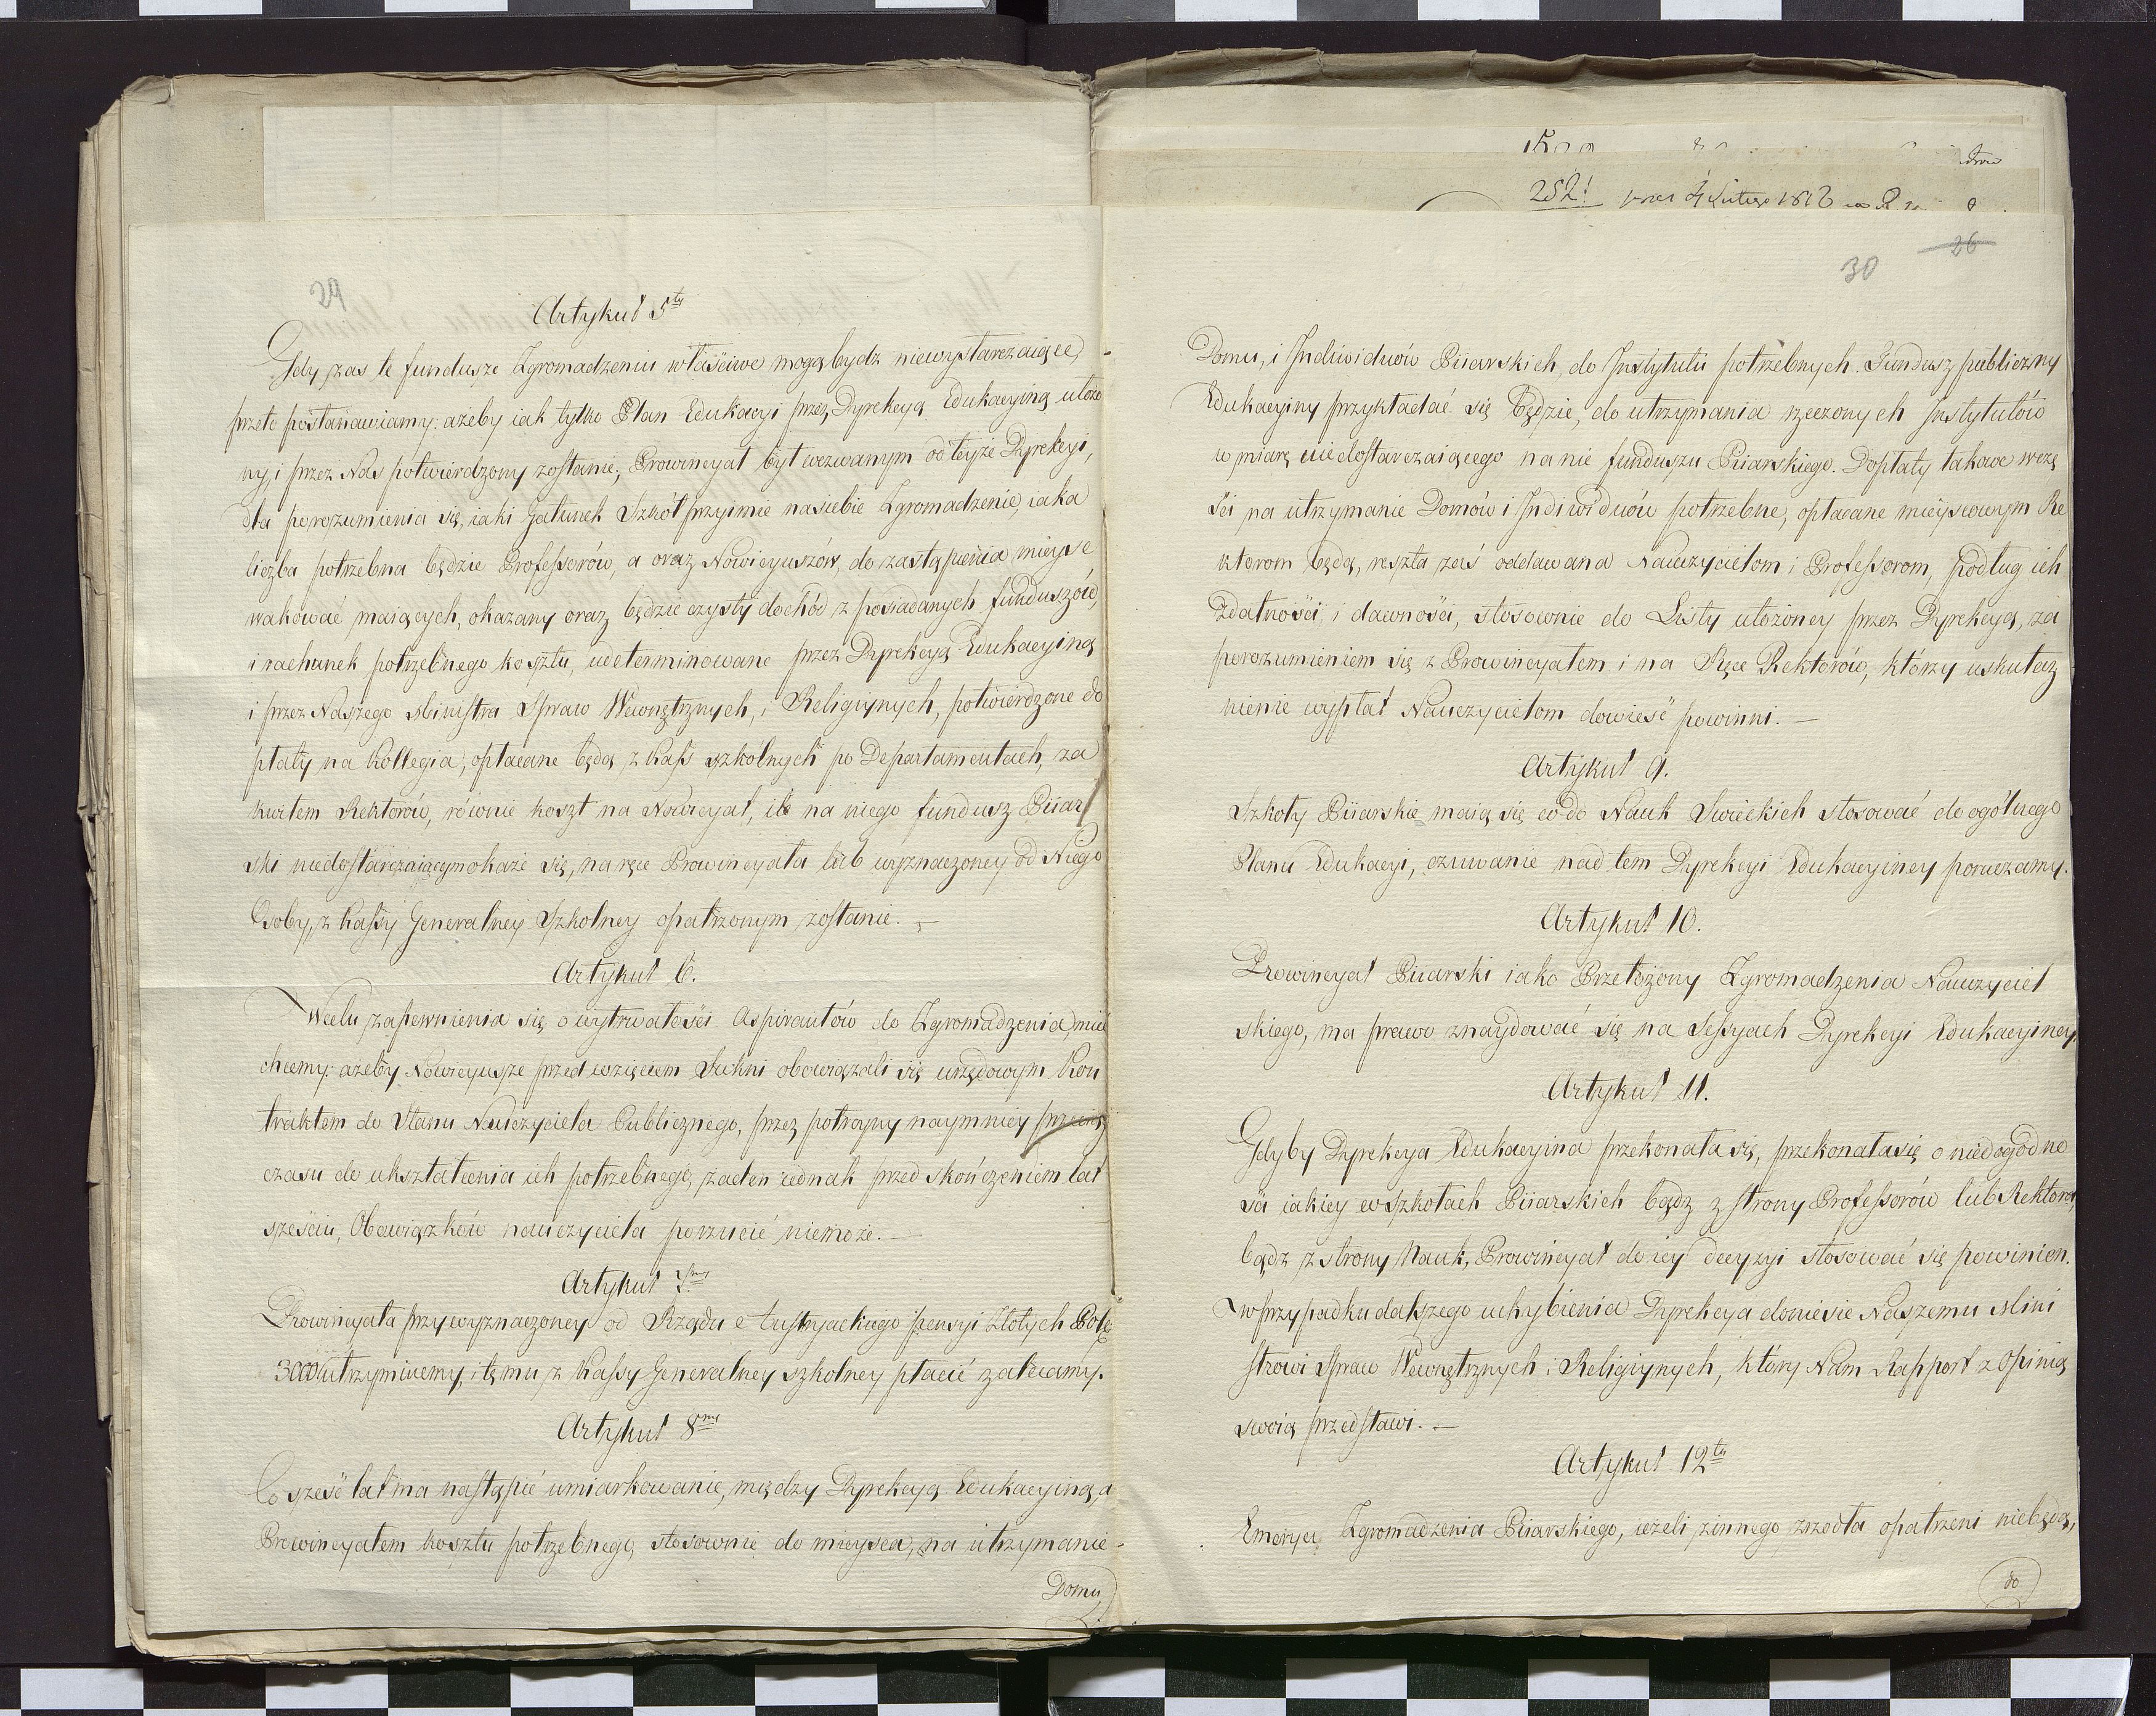 29
Artykuł 5ty
Gdy zas te fundusze Zgromadzeniu właściwe mogą bydz niewystarczaiące,
przeto postanawiamy: ażeby iak tylko Plan Edukacyi przez Dyrekcyą Edukacyiną ułożo
ny, i przez Nas potwierdzony zostanie, Prowincyał był wezwanym od teyże Dyrekcyi,
dla porozumienia się, iaki gatunek Szkół przyimie nasiebie Zgromadzenie, iaka
liczba potrzebna będzie Professorów, a oraz Nowicyuszów, do zastąpienia mieysc
wakować maiących, okazany oraz będzie czysty dochód z posiadanych funduszów,
i rachunek potrzebnego kosztu, udeterminowane przez Dyrekcyą Edukacyiną
i przez Naszego Ministra Spraw Wewnętrznych, i Religiynych, potwierdzone do
płaty na Kollegia, opłacane będą z Kass szkolnych po Departamentach, za
kwitem Rektorów, równie koszt na Nowicyat, ile na niego fundusz Piiar
ski niedostarczaiącym okaże się, na ręce Prowincyała lub wyznaczoney od Niego
Osoby, z Kassy Generalney Szkolney opatrzonym zostanie. –
Artykuł 6.
Wcelu zapewnienia się o wytrwałości Aspirantów do Zgromadzenia, mieć
chcemy: ażeby Nowicyusze przed wzięciem Sukni obowiązali się urzędowym Kon
traktem do Stanu Nauczyciela Publicznego, przez potroyny naymniey przeciąg
czasu do ukształcenia ich potrzebnego, żaden iednak przed skończeniem lat
sześciu, Obowiązków nauczyciela porzucić niemoże. –
Artykuł 7my
Prowincyała przy wyznaczoney od Rządu Austryackiego pensyi Złotych Pols
3000 utrzymuiemy, i tę mu z Kassy Generalney szkolney płacić zalecamy.
Artykuł 8my
Co sześć lat ma nastąpić umiarkowanie, między Dyrekcyą Edukacyiną, a
Prowincyałem kosztu potrzebnego, stosownie do mieysca, na utrzymanie
Domu
252! 4 Lutego 1812
26
30
Domu, i Indiwiduów Piiarskich, do Instytutu potrzebnych. Fundusz publiczny
Edukacyiny przykładać się będzie, do utrzymania rzeczonych Instytutów
w miarę niedostarczaiącego na nie funduszu Piiarskiego. Dopłaty takowe wczę
ści na utrzymanie Domów i Indiwiduów potrzebne, opłacane mieyscowym Re
ktorom będą, reszta zaś oddawana Nauczycielom i Professorom, podług ich
zdatności i dawności, stosownie do Listy ułożoney przez Dyrekcyą, za
porozumieniem się z Prowincyałem i na Ręce Rektorów, którzy uskutecz
nienie wypłat Nauczycielom dowieść powinni. –
Artykuł 9.
Szkoły Piiarskie maią się co do Nauk Swieckich stosować do ogólnego
Planu Edukacyi, czuwanie nad tem Dyrekcyi Edukacyiney poruczamy.
Artykuł 10.
Prowincyał Piiarski iako Przełożony Zgromadzenia Nauczyciel
skiego, ma prawo znaydować się na Sessyach Dyrekcyi Edukacyiney
Artykuł 11.
Gdyby Dyrekcya Edukacyina przekonała się, przekonała się o niedogodno
ści iakiey w szkołach Piiarskich bądz z strony Professorów lub Rektora,
bądz z strony Nauk, Prowincyał do iey decyzyi stosować się powinien.
w przypadku dalszego uchybienia Dyrekcya doniesie Naszemu Mini
strowi Spraw Wewnętrznych i Religiynych, który Nam Rapport z Opinią
swoią przedstawi. –
Artykuł 12ty
Emeryci Zgromadzenia Piiarskiego, ieżeli z innego zrzodła opatrzeni niebędą,
do